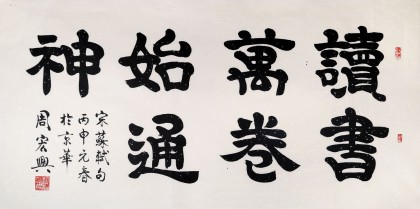 讀書
萬卷
始通
神
宋蘇軾句
丙申元春
於京華
周宏興